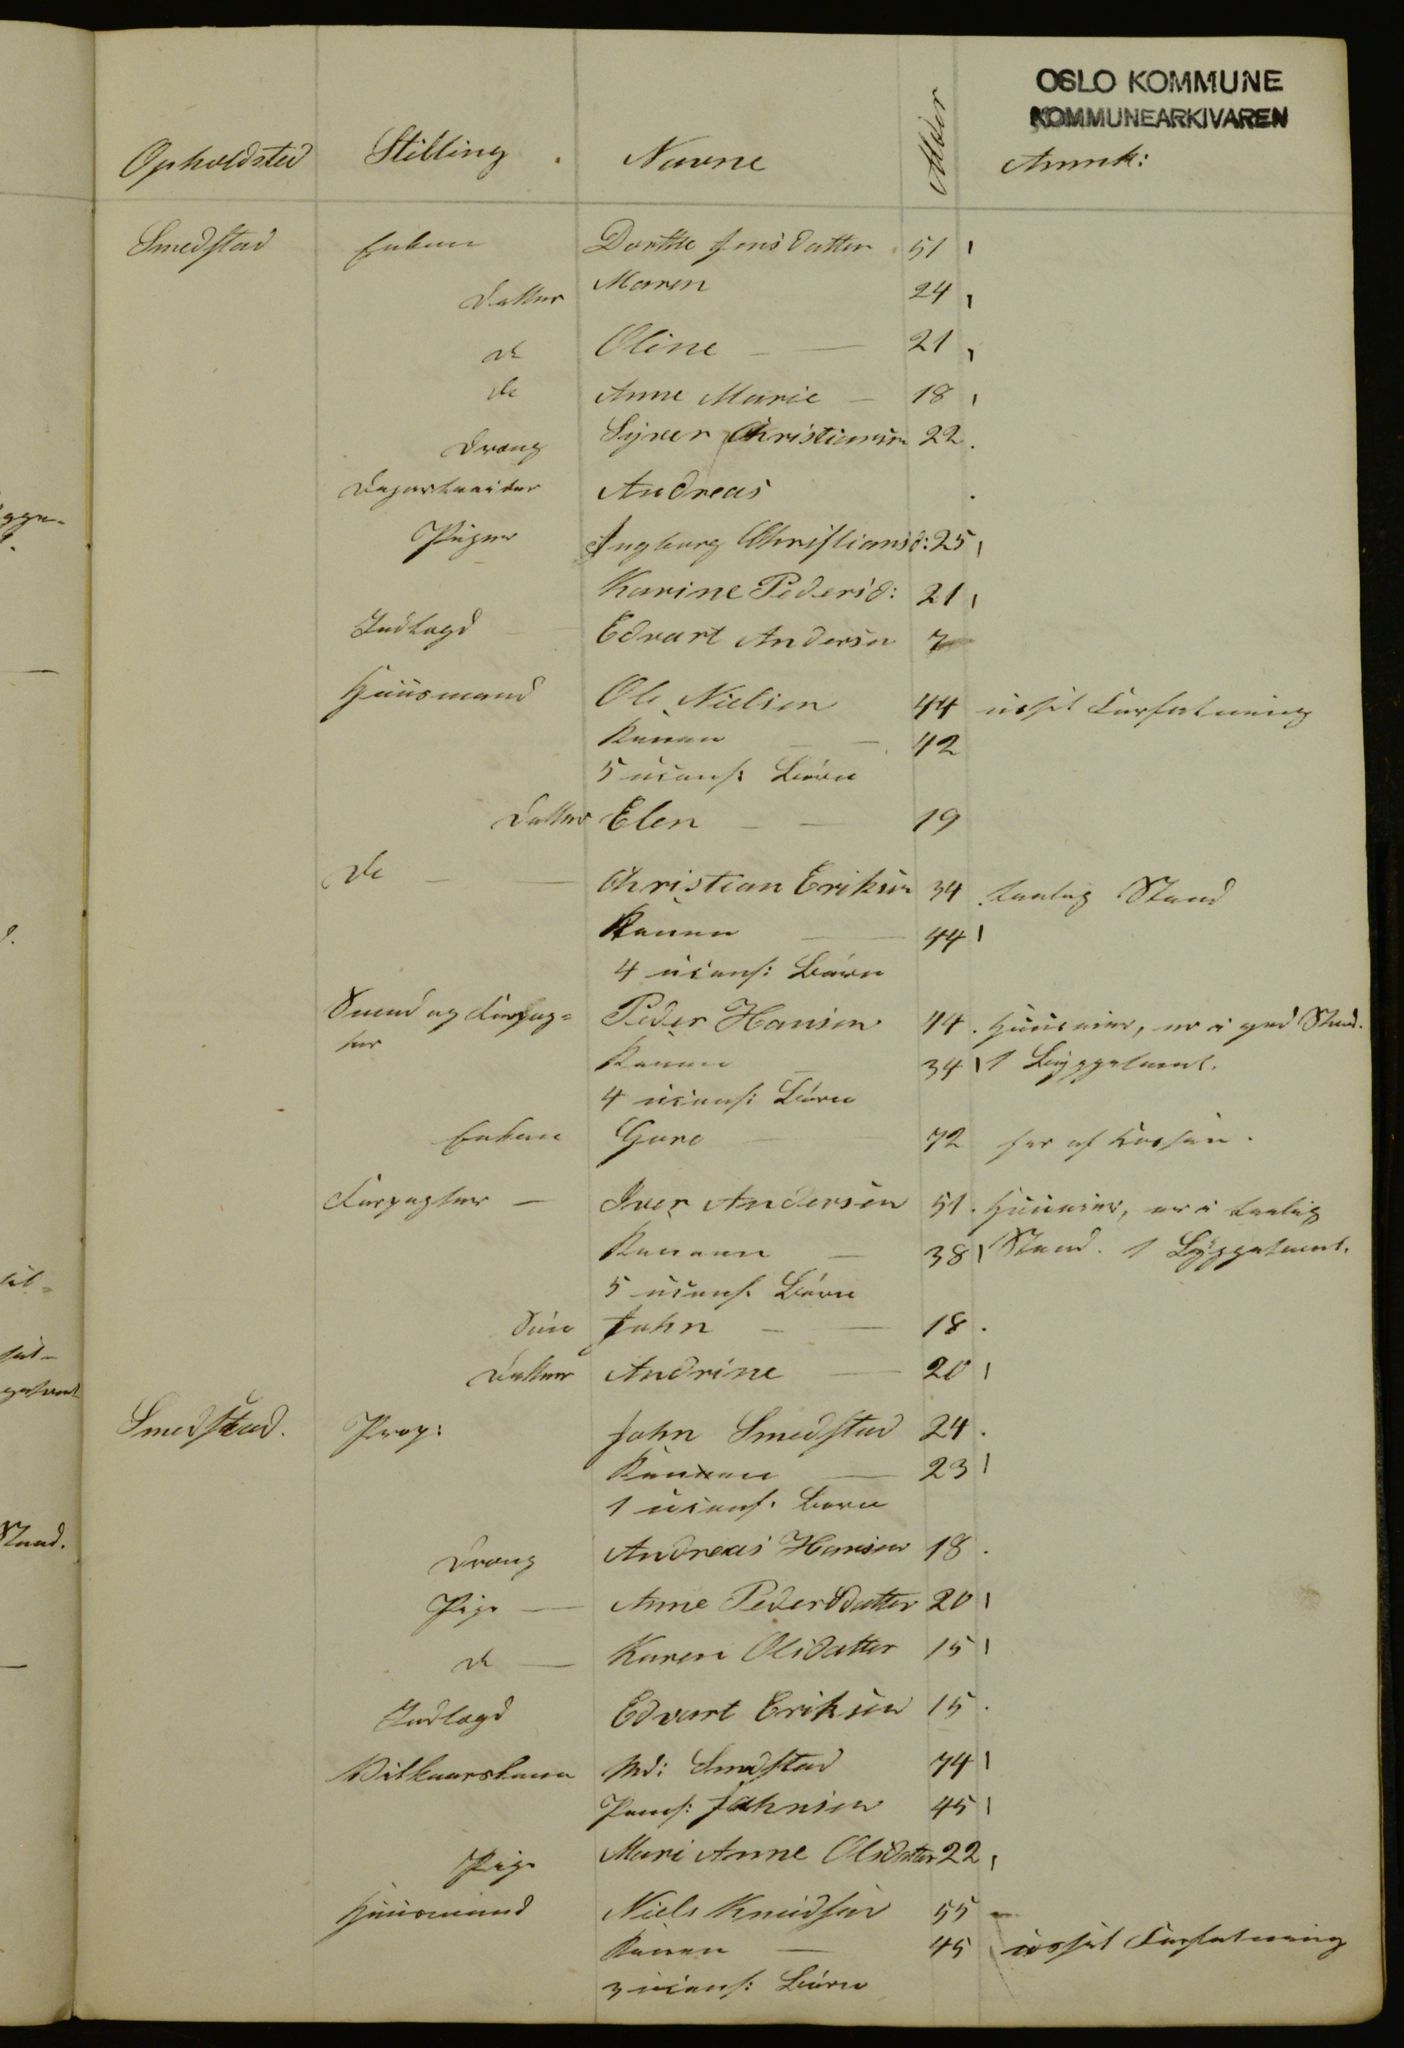 OSLO KOMMUNE
KOMMUNEARKIVAREN
Opholdsted Stilling Navne Alder Anmk:
Smedstad Enken Dorthe Jensdatter 51
Datter Maren 24
do Oline 21
do Anne Marie 18
Dreng Syver Christiansen 22
Dagarbeider Andreas
Piger Ingborg Christiansd: 25
Karine Pedersd: 21
Indlagd Edvart Andersen 7
Huusmand Ole Nielsen 44 ussel Forfatning
Konen 42
5 uconf: Børn
Datter Elen 19
do Christian Eriksen 34 taalig Stand
Konen 44
4 uconf: Børn
Smed og Forpag=
ter Peder Hansen 44 Huuseier, er i god Stand.
Konen 34 1 Byggetomt.
4 uconf: Børn
Enken Guro 72
Forpagter Iver Andersen 51 Huuseier, er i taalig
Konen 38 Stand. 1 Byggetomt.
5 uconf. Børn
Søn John 18
Datter Andrine 20
Smedstad. Prop: John Smedstad 24
Konen 23
1 uconf. Barn
Dreng Andreas Hansen 18
Pige Anne Pedersdatter 20
do Karen Olsdatter 15
Indlagd Edvart Eriksen 15
Vilkaarskone Md: Smedstad 74
Johnsen 45
Pige Mari Anne Olsdatter 22
Huusmand Niels Knudsen 55
Konen 45 ussel Forfatning
3 uconf: Børn